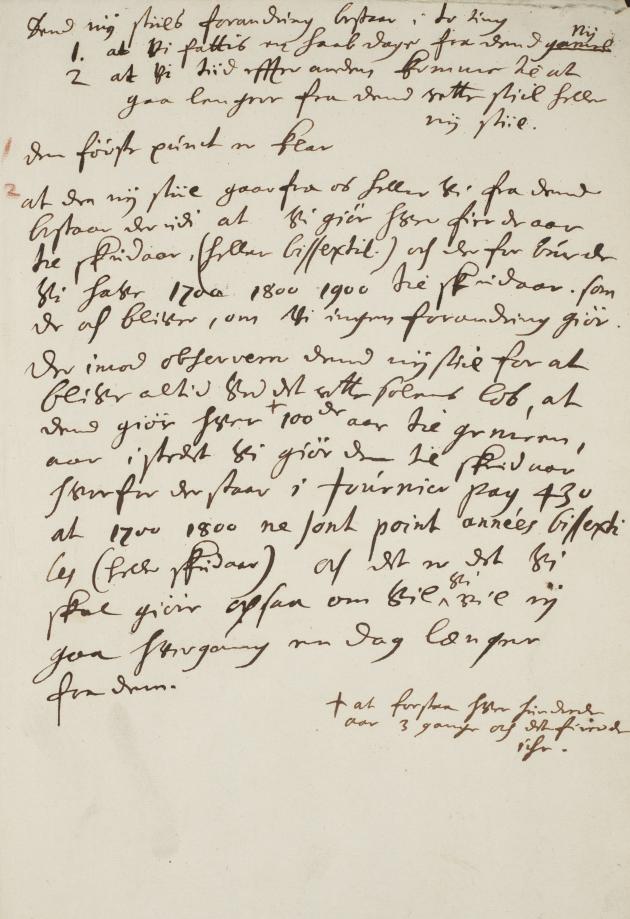 Dend nÿ stiils forandring bestaar i to ting
1. at Vi fattis en haab dage fra dend gamel nÿ
2 at Vi tiid effter anden komme til at
gaa lenger fra dend rette stiil heller
nÿ stiil.
1 den förste punct er klar
2 at den nÿ stiil gaar fra os heller Vi fra dend
bestaar derudi at Vi giör hver fierde aar
til skudaar, (heller bissextil.) och derfor burde
Vi hafve 1700 1800 1900 til skudaar. som
de och blifve, om Vi ingen forandring giör.
Der imod observerer dend nÿ stiil for at
blifve altid Ved det rette solens löb, at
dend giör hver + 100de aar til gemeen,
aar i stedet Vi giör dem til skudaar
hvorfor der staar i Fournier pag 430
at 1700 1800 ne sont point années bissexti
les (heller skudaar) och det er det Vi
skal giöre ossaa om Vil Vi ej
gaa hvergang en dag længer
fra dem.
+ at forstaa hver hundrede
aar 3 gange och det fierde
iche.